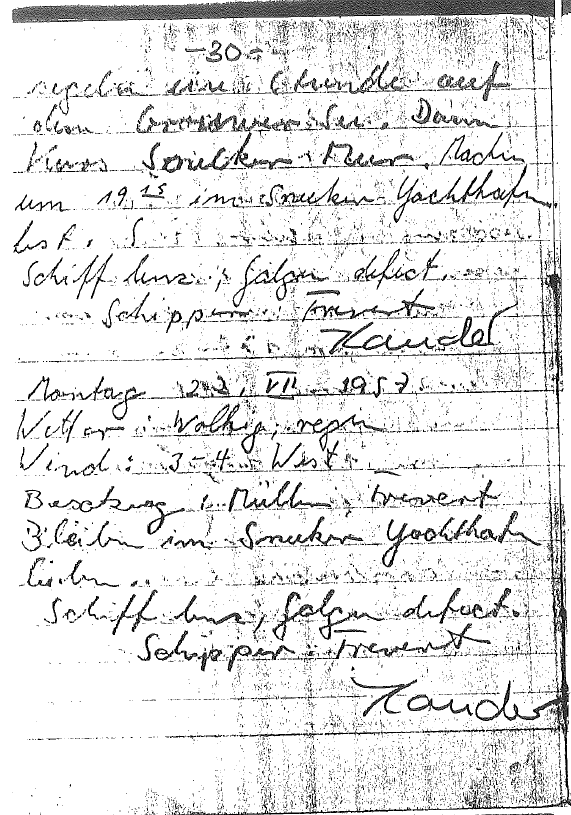 -30-
segeln eine Stunde auf
dem See. Dann
Kurs Sneeker Meer. Machen
um 19.15 im Sneeker Yachthafen
fest.
Schiff lenz, Galgen defect.
Schipper: Frevert
Xander
Montag 22. VII 1957
Wetter: Wolkig, regen
Wind: 3-4 West
Besatzung: Müller, Frevert
Bleiben im Sneeker Yachthafen
liegen.
Schiff lenz, Galgen defect.
Schipper: Frevert
Xander